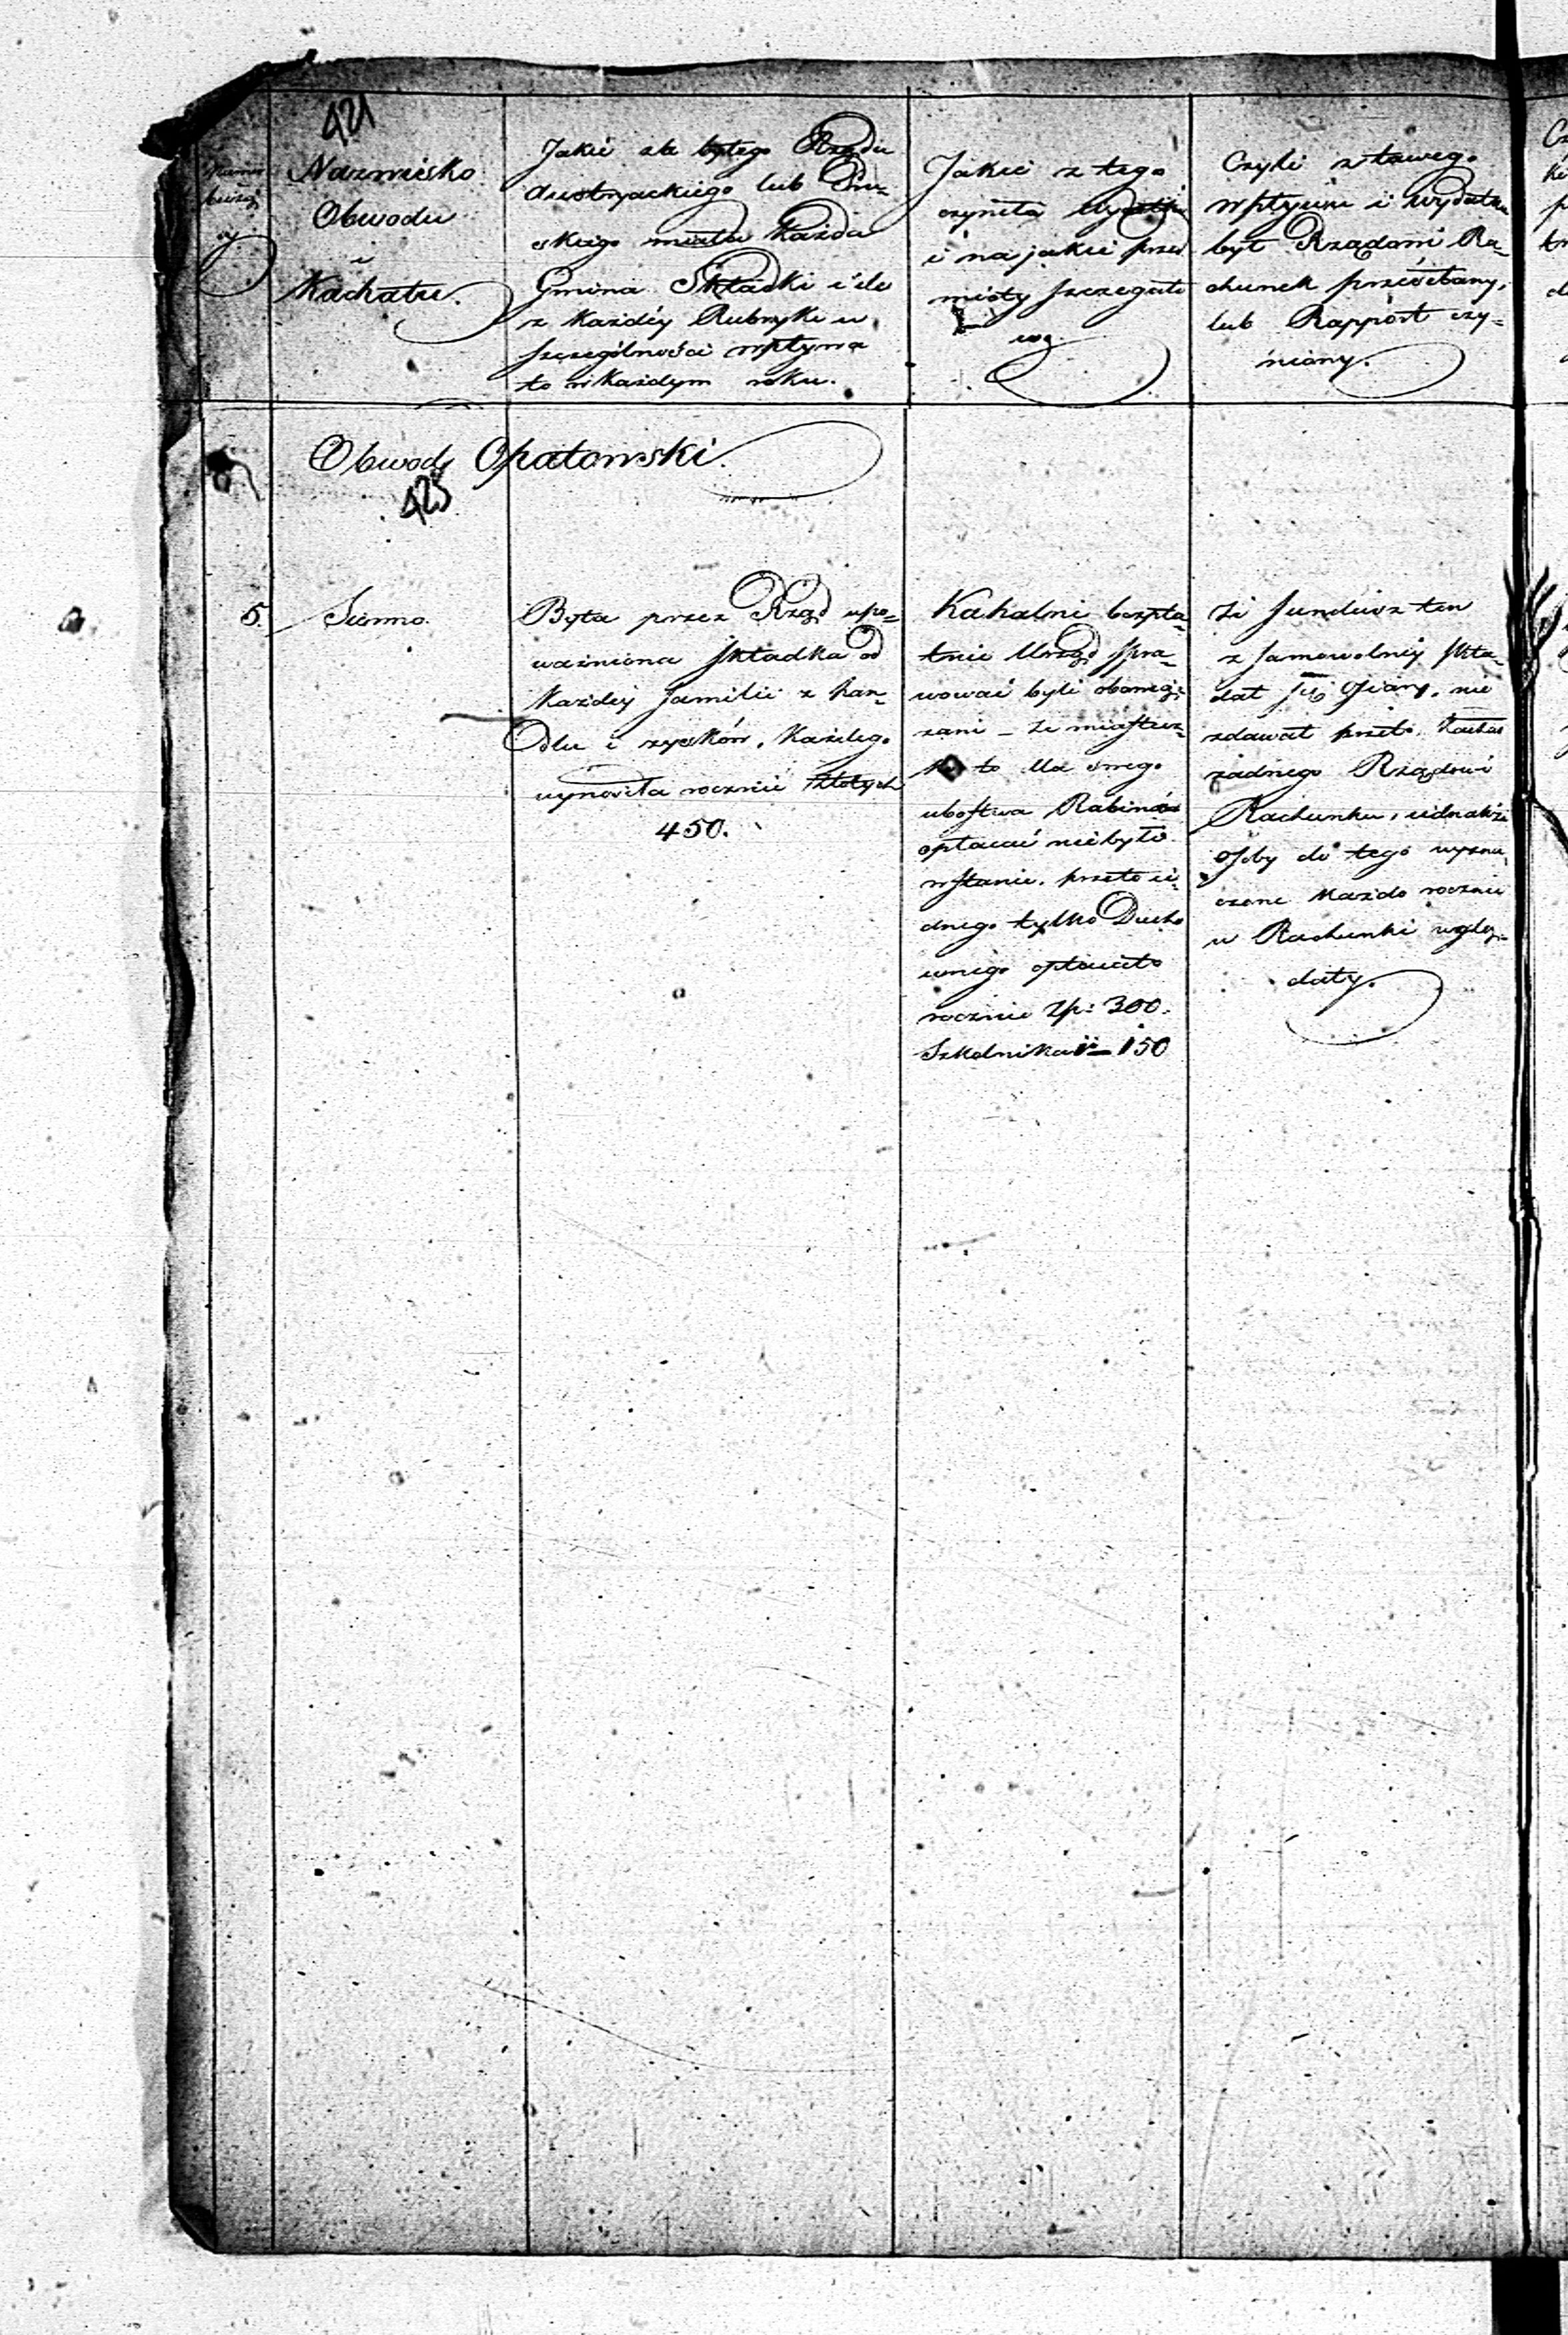 421
Nazwisko
Obwodu
i
Kachału.
Jakie za byłego Rządu
Austryackiego lub Pru-
skiego miała Każda
Gmina Składki i ile
z Każdéy Rubryki w
szczególności wpływa
ło w Każdym roku.
Jakie z tego
czyniła Wydatki
i na jakie przed
mioty szczegóło
wo.
Czyli z tawego
wpływu i Wydatku
był Rządowi Ra-
chunek przesełany,
lub Rapport czy-
niony.
Obwod Opatowski.
425
5.
Sienno.
Była przez Rząd upo-
ważniona składka od
Każdey familii z han-
dlu i zysków, Każdego
wynosiła rocznie Złotych
450.
Kahalni bezpła-
tnie Urząd spra-
wować byli obowią-
zani – że miastecz-
ko to dla swego
ubostwa Rabina
opłacać nie było
wstanie, przeto ie-
dnego tylko Ducho
wnego opłacało
rocznie Zp: 300.
Szkolnika ii – 150
Że fundusz ten
z samowolnéy skła-
dał się Ofiary, nie
zdawał przeto Kachał
żadnego Rządowi
Rachunku, iednakże
Osoby do tego wyzna
czone Każdo rocznie
w Rachunki wglą-
dały.